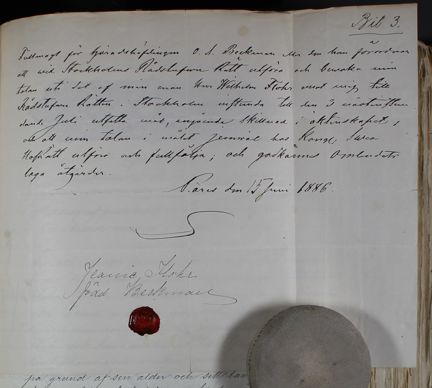 Bil 3.
Fullmagt för Häradshöfdingen O. S. Beckman eller den han förordnar
att vid Stockholms Rådstufvu Rätt utföra och bevaka min
talan uti det af min man Herr Wilhelm Flohr emot mig, till
Rådstufvu Rätten i Stockholm till den 3 nästkommande
Juli uttagna mål, angående skillnad i äktenskapet,
och att min talan i målet jemväl hos Kongl. Svea
Hofrätt utföra och fullfölja; och godkännes Ombudets
laga åtgärder.
Paris den 15 Juni 1886.
Jeanie Flohr
född Beckman
på grund af sin ålder och